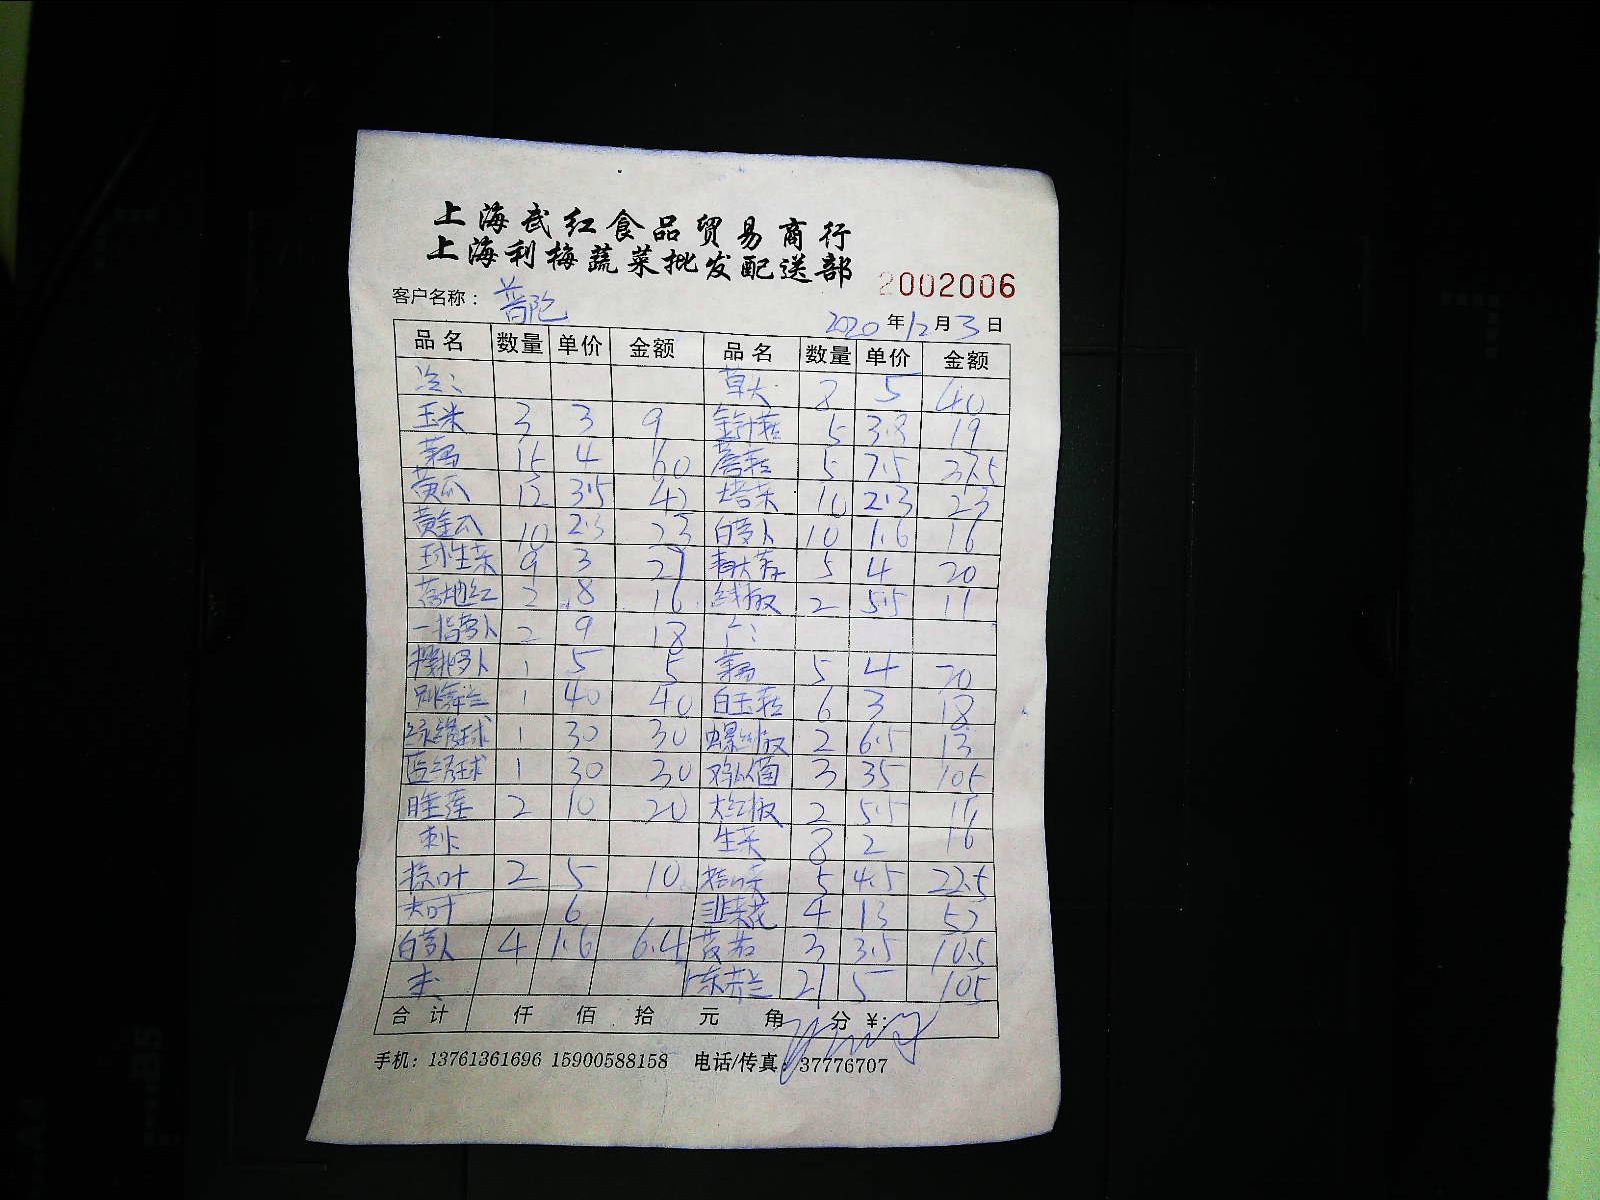 上海武红食品贸易商行
上海利梅蔬菜批发配送部
2002006
客户名称：普陀
2020年12月3日
品名 数量 单价 金额 品名 数量 单价 金额
冷: 草大 8 5 40
玉米 3 3 9 金针菇 5 3.8 19
15 4 60 蘑菇 5 7.5 37.5
黄瓜 12 3.5 42 塔菜 10 2.3 23
黄金瓜 10 2.3 23 白萝卜 10 1.6 16
球生菜 9 3 27 5 4 20
落地红 2 8 16 线椒 2 5.5 11
一指萝卜 2 9 18
樱桃萝卜 1 5 5 5 4 20
跳舞兰 1 40 40 白玉菇 6 3 18
绿绣球 1 30 30 螺丝椒 2 6.5 13
蓝绣球 1 30 30 鸡枞菌 3 35 105
睡莲 2 10 20 大红椒 2 5.5 11
刺: 生菜 8 2 16
2 5 10 5 4.5 22.5
大叶 6 韭菜花 4 13 52
白萝卜 4 1.6 6.4 3 3.5 10.5
芥兰 21 5 105
合计 仟 佰 拾 元 角 分 ¥:
手机：13761361696 15900588158 电话/传真：37776707